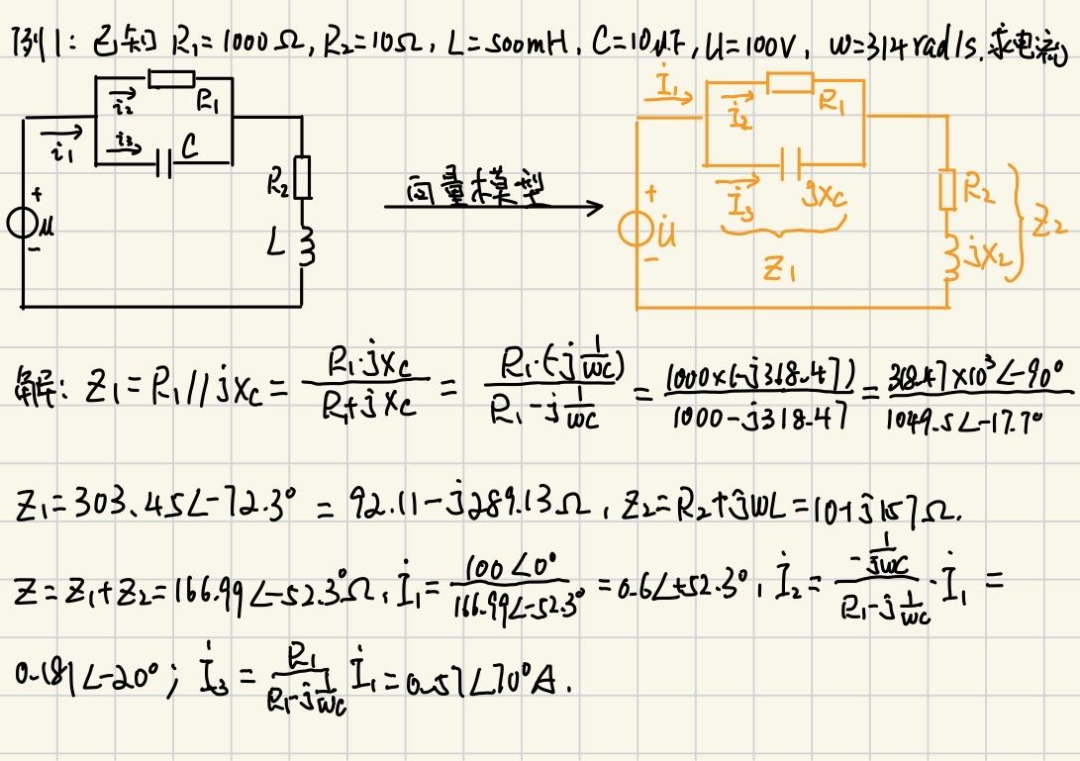 例1: 已知 R₁=1000Ω, R₂=10Ω, L=500mH, C=10μF, U=100V, ω=314rad/s. 求电流
i₂ R₁
i₁ i₃ C
+ u - R₂ L
向量模型
İ₁ İ₂ R₁
İ₃ jXc Z₁
+ U̇ - R₂ jX₂ Z₂
解: Z₁=R₁//jXc = (R₁·jXc)/(R₁+jXc) = (R₁·(-j1/ωC))/(R₁-j1/ωC) = (1000×(-j318.47))/(1000-j318.47) = (318.47×10³∠-90°)/(1049.5∠-17.7°)
Z₁=303.45∠-72.3° = 92.11-j289.13Ω, Z₂=R₂+jωL=10+j157Ω.
Z=Z₁+Z₂=166.99∠-52.3°Ω, İ₁=(100∠0°)/(166.99∠-52.3°)=0.6∠+52.3°, İ₂=(-1/jωC)/(R₁-j1/ωC)·İ₁=
0.181∠-20°; İ₃=R₁/(R₁-j1/ωC) İ₁=0.57∠70°A.